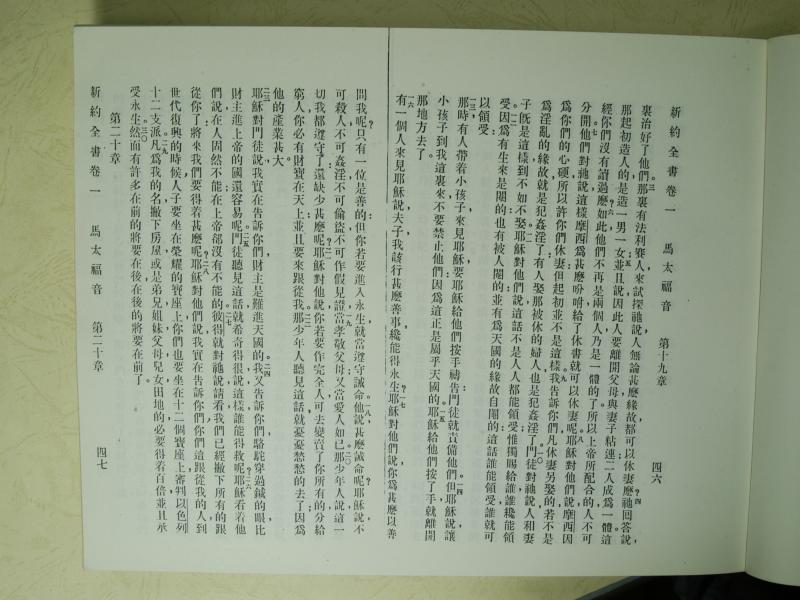 新約全書卷一 馬太福音 第十九章 四六
裏治好了他們。三那裏有法利賽人來試探祂說人無論甚麼緣故都可以休妻麼？四祂回答說
那起初造人的是造一男一女五並且說因此人要離開父母與妻子粘連二人成爲一體這
經你們沒有讀過麼？六如此他們不再是兩個人乃是一體的了所以上帝所配合的人不可
分開。七他們對祂說這樣摩西爲甚麼吩咐給了休書就可以休妻呢？八耶穌對他們說摩西因
爲你們的心硬所以許你們休妻但起初並不是這樣。九我告訴你們凡休妻另娶的若不是
爲淫亂的緣故就是犯姦淫了有人娶那被休的婦人也是犯姦淫了。一〇門徒對祂說人和妻
子旣是這樣到不如不娶。一一耶穌對他們說這話不是人人都能領受惟獨賜給誰誰纔能領
受。一二因爲有生來是閹的也有被人閹的並有爲天國的緣故自閹的這話誰能領受誰就可
以領受。
一三那時有人帶着小孩子來見耶穌要耶穌給他們按手禱告門徒就責備他們。一四但耶穌說讓
小孩子到我這裏來不要禁止他們因爲這正是屬乎天國的。一五耶穌給他們按了手就離開
那地方去了。
一六有一個人來見耶穌說夫子我該行甚麼善事纔能得永生？一七耶穌對他們說你爲甚麼以善
問我呢？只有一位是善的但你若要進入永生就當遵守誡命。一八他說甚麼誡命呢耶穌說不
可殺人不可姦淫不可偷盜不可作假見證一九當孝敬父母又當愛人如己。二〇那少年人說這一
切我都遵守了還缺少甚麼呢？二一耶穌對他說你若要作完全人可去變賣了你所有的分給
窮人你必有財寶在天上並且要來跟從我。二二那少年人聽見這話就憂憂愁愁的去了因爲
他的產業甚大。
二三耶穌對門徒說我實在告訴你們財主是難進天國的。二四我又告訴你們駱駝穿過鍼的眼比
財主進上帝的國還容易呢。二五門徒聽見這話就希奇得很說這樣誰能得救呢？二六耶穌看着他
們說在人固然不能在上帝卻沒有不能的。二七彼得就對祂說請看我們已經撇下所有的跟
從你了將來我們要得着甚麼呢？二八耶穌對他們說我實在告訴你們你們這跟從我的人到
世代復興的時候人子要坐在榮耀的寶座上你們也要坐在十二個寶座上審判以色列
十二支派。二九凡爲我的名撇下房屋或是弟兄姐妹父母兒女田地的必要得着百倍並且承
受永生。三〇然而有許多在前的將要在後在後的將要在前了。
第二十章
新約全書卷一 馬太福音 第二十章 四七